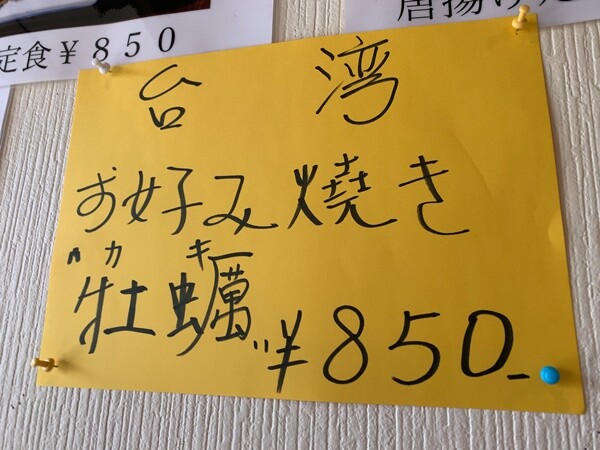 定食￥８５０
唐揚げ定
台湾
お好み燒き
"カキ
牡蠣〃￥850-